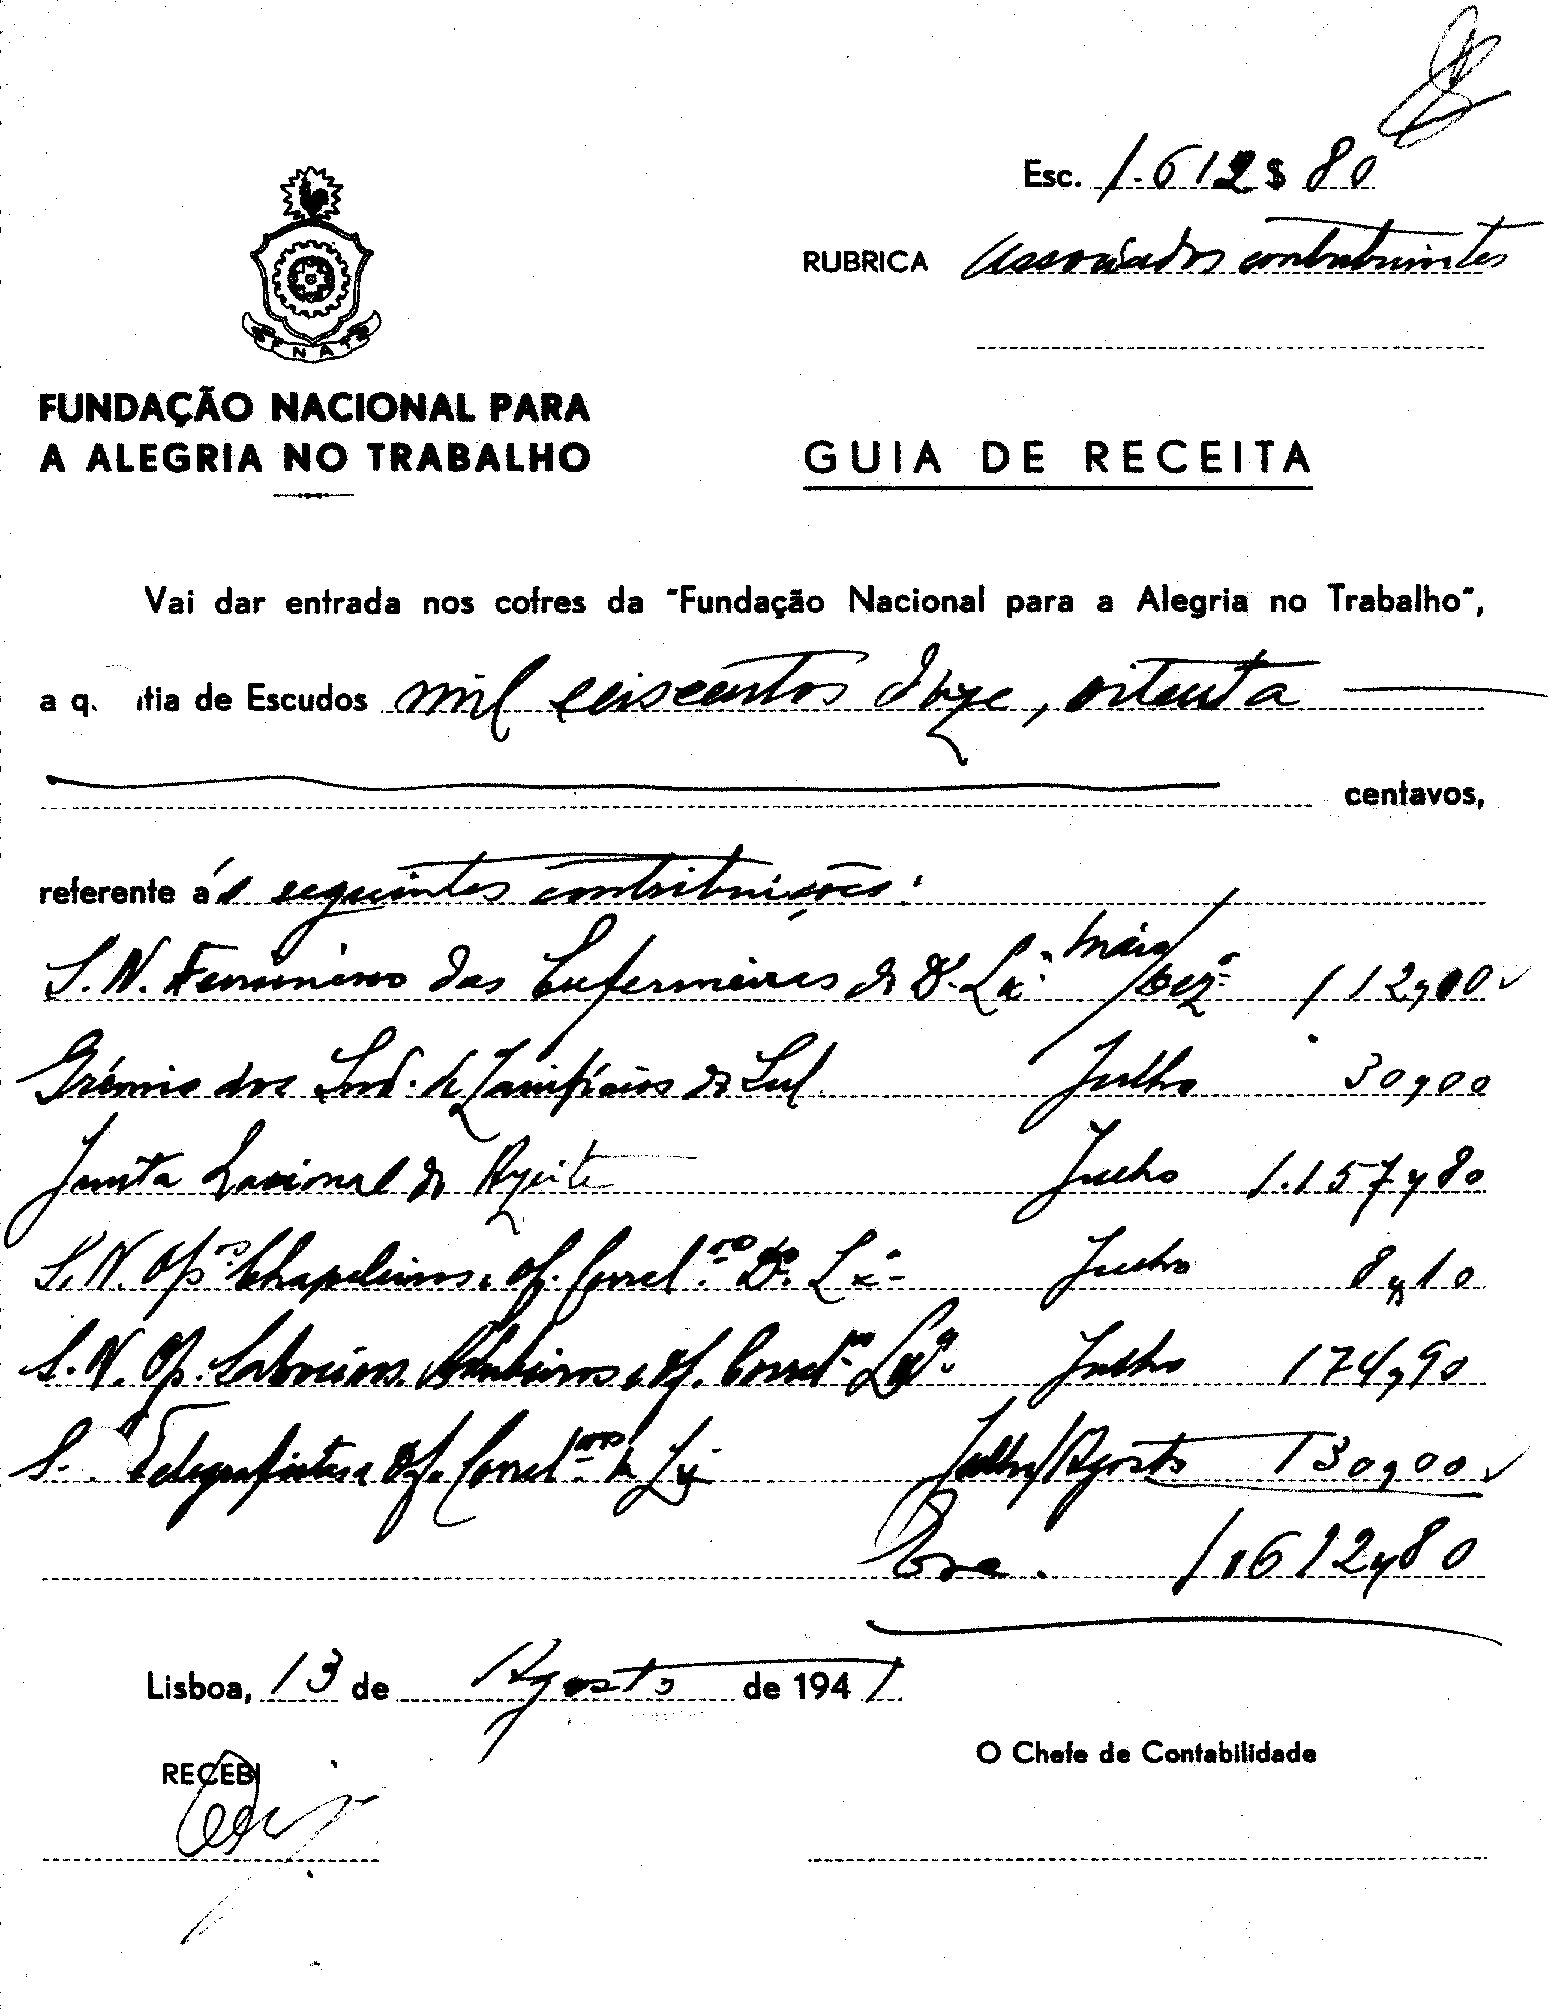 Esc. 1.612$80
RUBRICA Associados contribuintes
FNAT
FUNDAÇÃO NACIONAL PARA
A ALEGRIA NO TRABALHO
GUIA DE RECEITA
Vai dar entrada nos cofres da "Fundação Nacional para a Alegria no Trabalho",
a q. tia de Escudos mil seiscentos doze, oitenta
centavos,
referente ás seguintes contribuições:
S. N. Feminino das Enfermeiras do D. Lx.ª Maio/Dez.º 112,00
Grémio dos Ind. de Lanifícios do Sul Julho 30,00
Junta Nacional do Azeite Julho 1.157,80
S. N. Op.ºs Chapeleiros e Of. Correl.ºs D.º Lx.ª Julho 8,10
S. N. Op. e Of. Correl.ºs Lx.ª Julho 174,90
S. Telegrafistas e Of. Correl.ºs de Lx Julho/Agosto 130,00
1.612,80
Lisboa, 13 de Agosto de 1941
RECEBI
O Chefe de Contabilidade